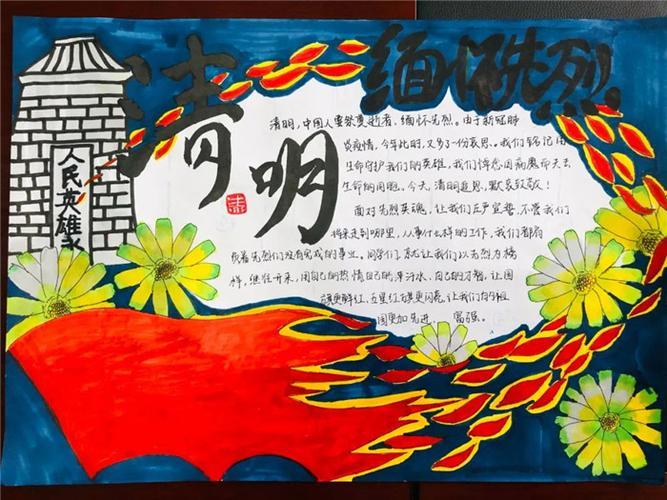 清明
缅怀先烈
人民英雄永
清明,中国人重祭奠逝者,缅怀先烈。由于新冠肺
炎疫情,今年此时,又多了一份哀思。我们铭记用
生命守护我们的英雄,我们悼念因病离开失去
生命的同胞。今天,清明追思,默哀致敬!
面对先烈英魂,让我们庄严宣誓,不管我们
将来走到哪里,从事什么样的工作,我们都肩
负着先烈们没有完成的事业。同学们,就让我们以先烈为榜
样,继往开来,用自己的热情自己的汗水,自己的才智,让国
旗更鲜红,五星红旗更闪亮,让我们的祖
国更加先进、富强。